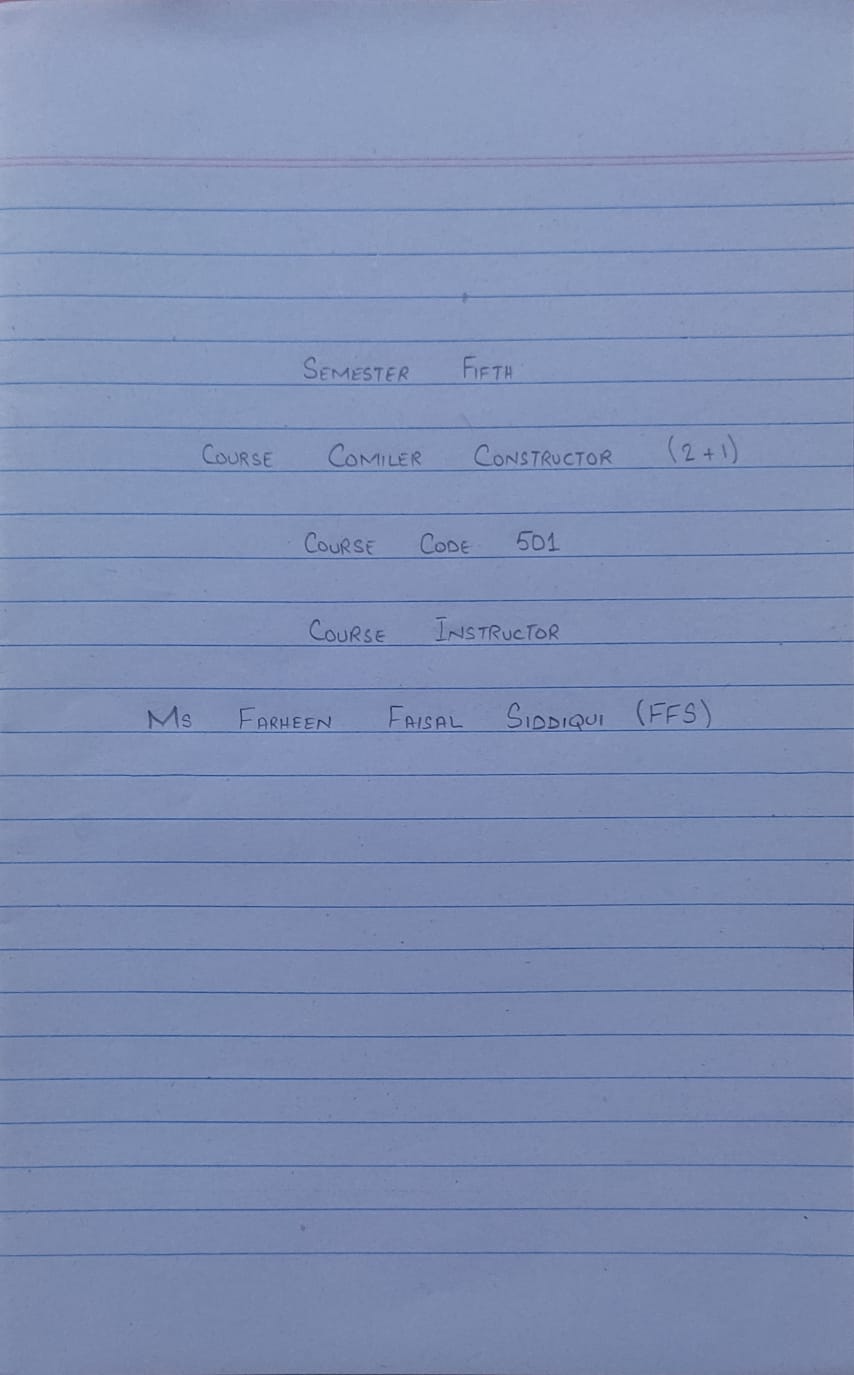 SEMESTER FIFTH
COURSE COMILER CONSTRUCTOR (2+1)
COURSE CODE 501
COURSE INSTRUCTOR
MS FARHEEN FAISAL SIDDIQUI (FFS)